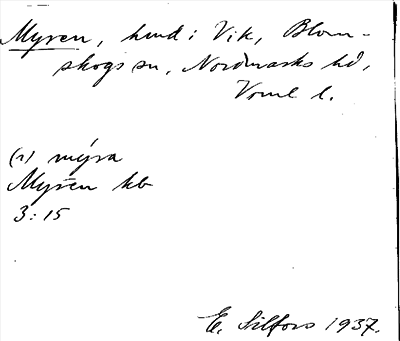 Myren, hmd i Vik, Blom-
skogs sn, Nordmarks hd,
Vrml l.
(1) mýra
Myren kb
3:15
E. Silfors 1937.